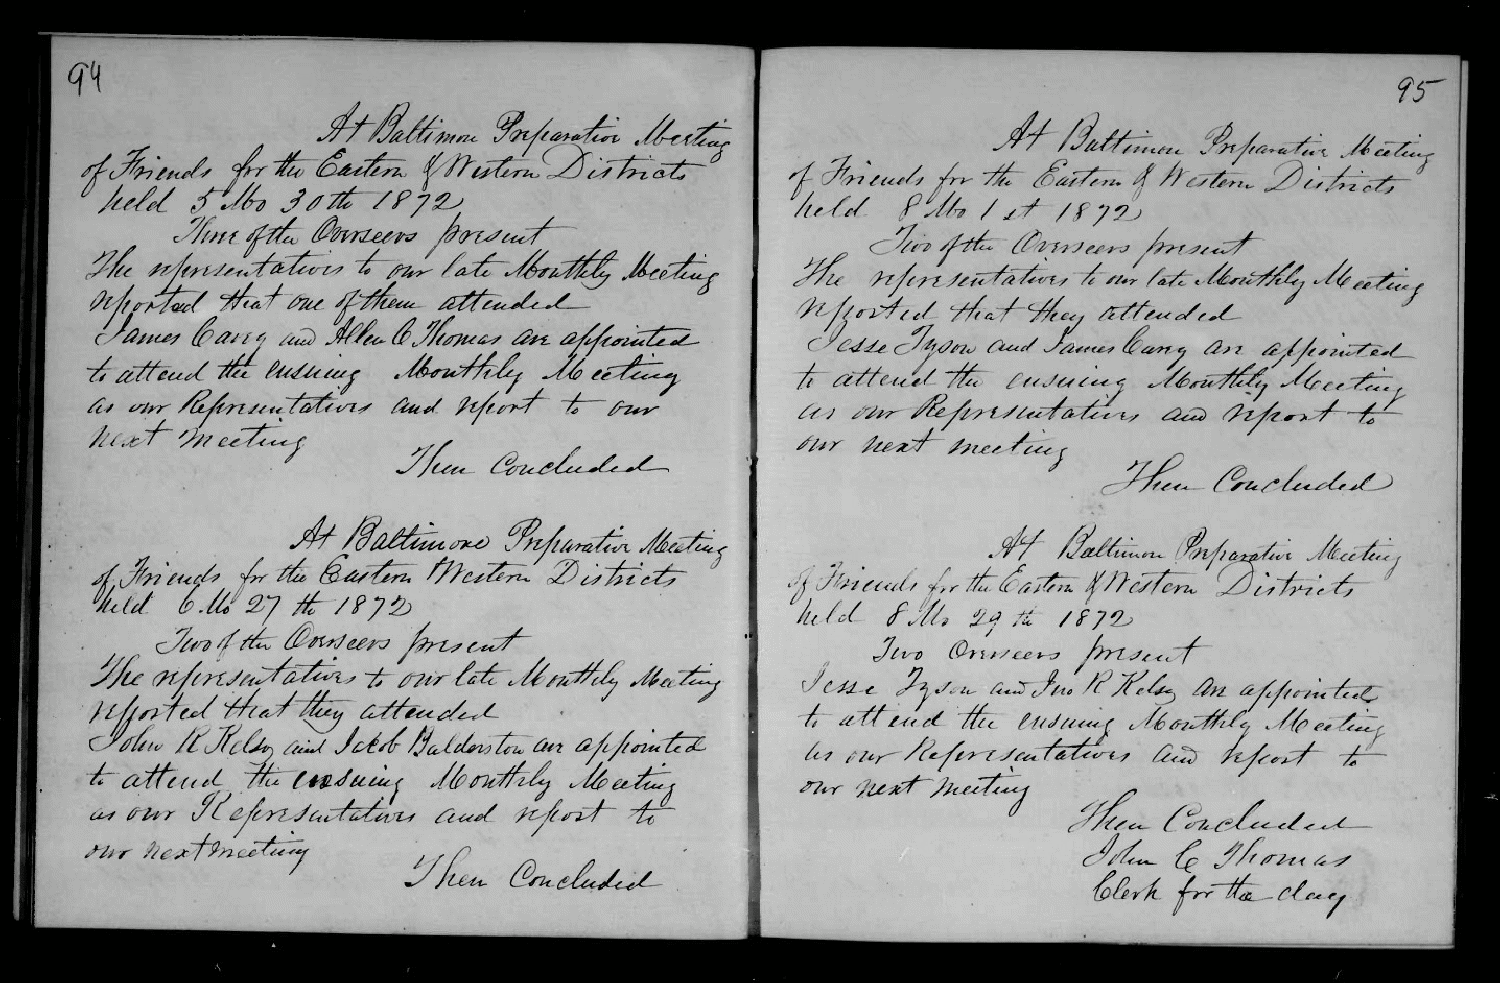 94
At Baltimore Preparative Meeting
of Friends for the Eastern & Western Districts
held 5 Mo 30th 1872
Three of the Overseers present
The representatives to our late Monthly Meeting
reported that one of them attended
James Carey and Allen C Thomas are appointed
to attend the ensuing Monthly Meeting
as our Representatives and report to our
next meeting
Then Concluded
At Baltimore Preparative Meeting
of Friends for the Eastern & Western Districts
held 6 Mo 27th 1872
Two of the Overseers present
The representatives to our late Monthly Meeting
reported that they attended
John R Kelso and Jacob Balderston are appointed
to attend the ensuing Monthly Meeting
as our Representatives and report to
our next meeting
Then Concluded
95
At Baltimore Preparative Meeting
of Friends for the Eastern & Western Districts
held 8 Mo 1st 1872
Two of the Overseers present
The representatives to our late Monthly Meeting
reported that they attended
Jesse Tyson and James Carey are appointed
to attend the ensuing Monthly Meeting
as our Representatives and report to
our next meeting
Then Concluded
At Baltimore Preparative Meeting
of Friends for the Eastern & Western Districts
held 8 Mo 29th 1872
Two Overseers present
Jesse Tyson and Jno R Kelso are appointed
to attend the ensuing Monthly Meeting
as our Representatives and report to
our next meeting
Then Concluded
John C Thomas
Clerk for the day